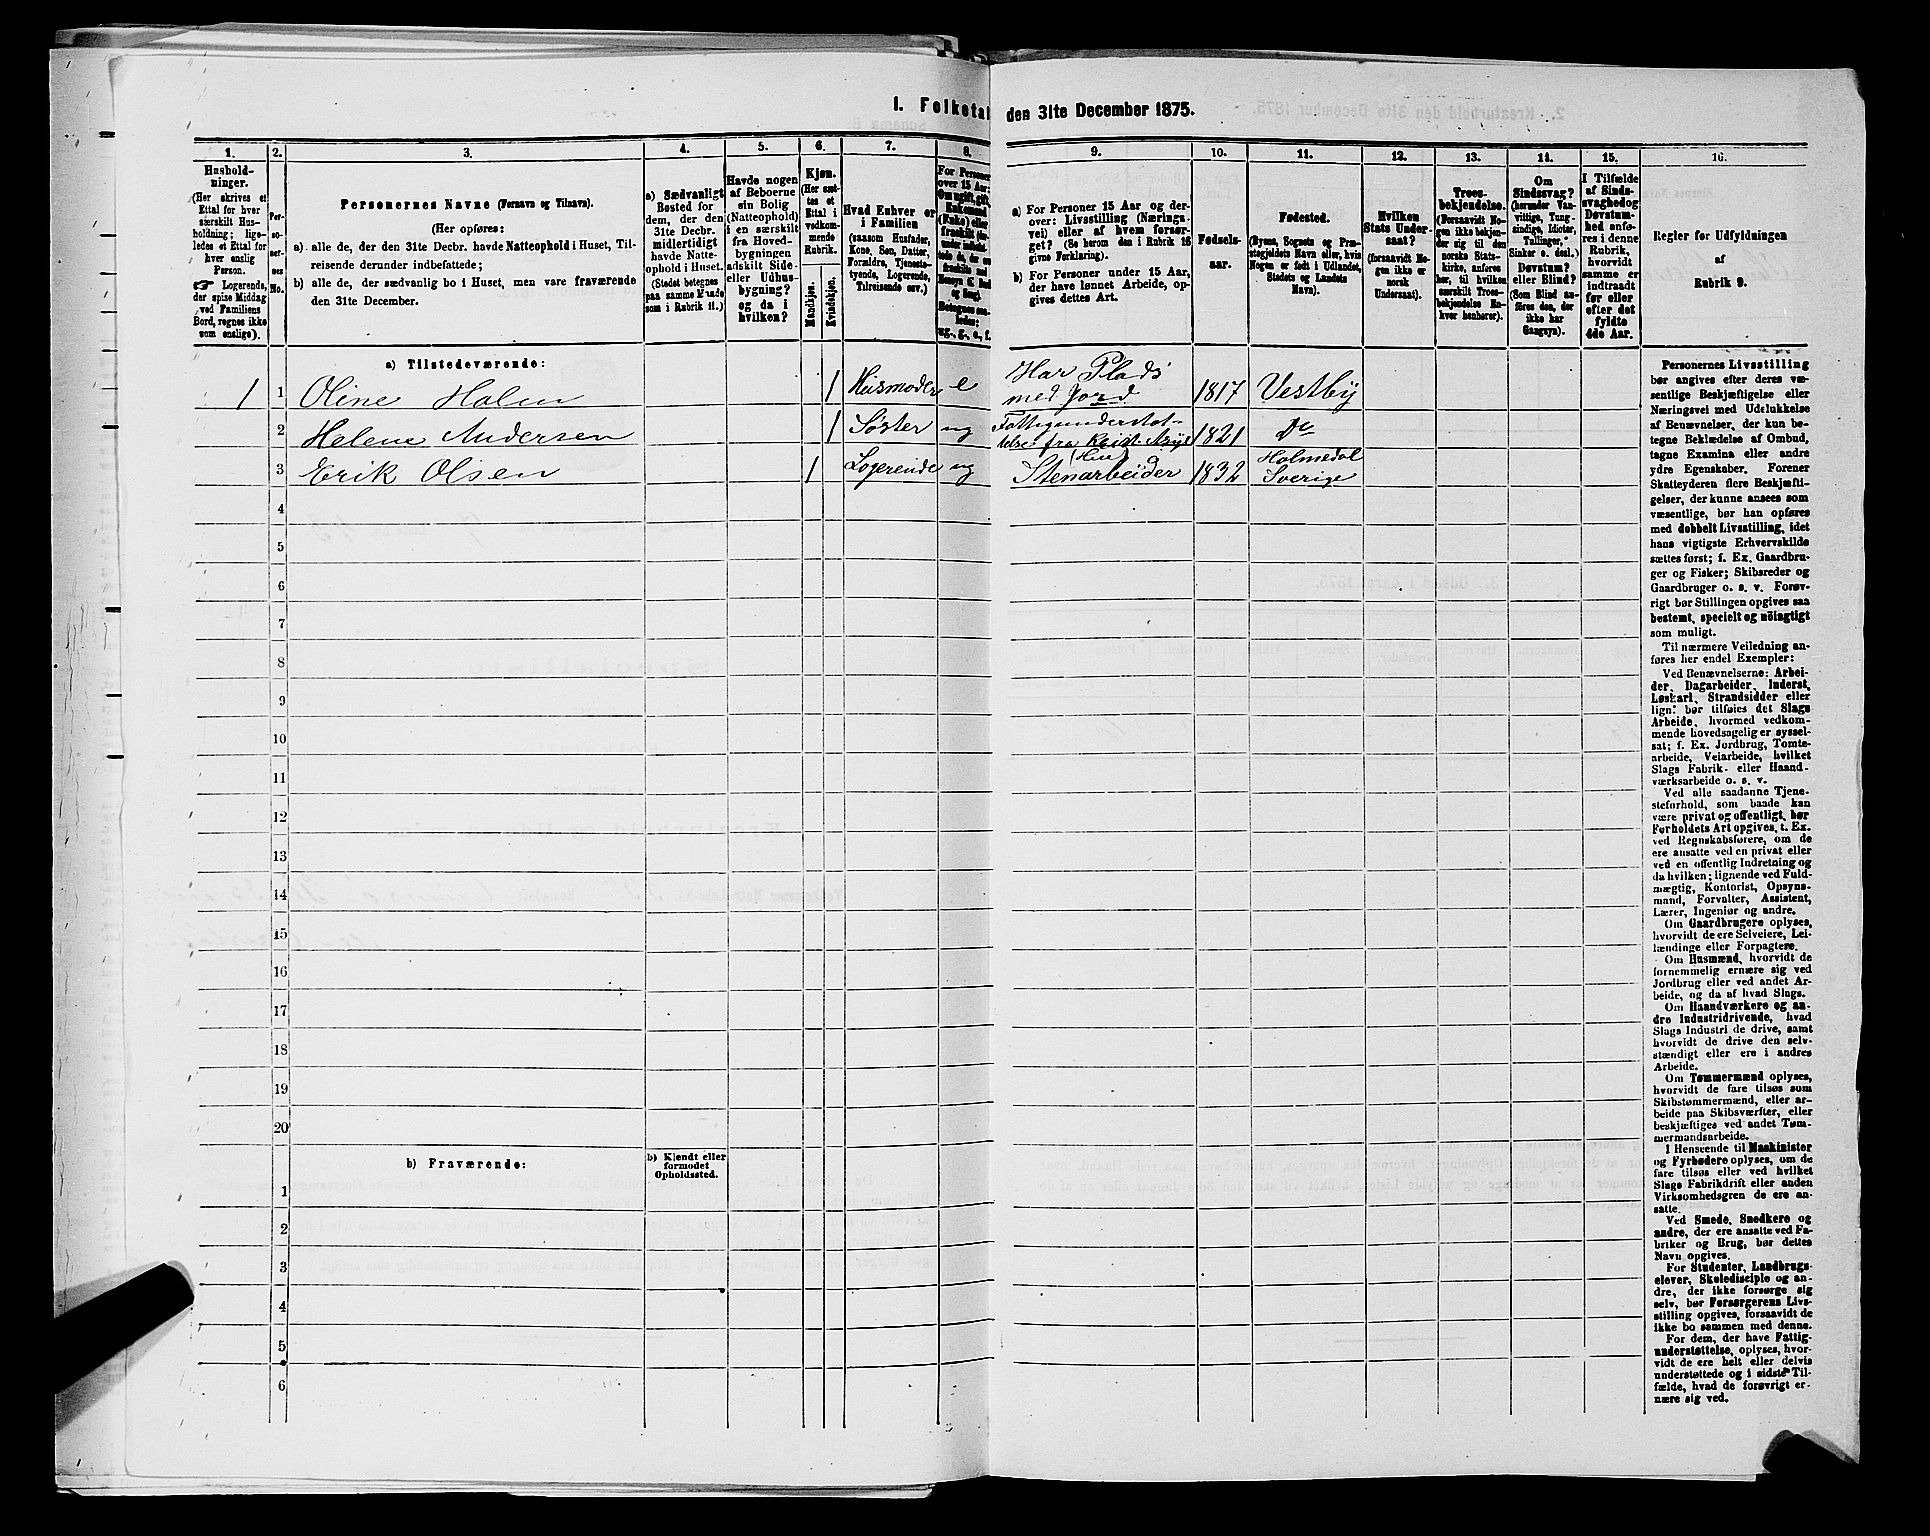 1. Folketal den 31te December 1875.
1.
2.
3.
4.
5.
6.
7.
8.
9.
10.
11.
12.
13.
14.
15.
16.
Hushold-
ninger.
(Her skrives et
Ettal for hver
særskilt Hus-
holdning; lige-
ledes et Ettal for
hver enslig
Person.
☞ Logerende,
der spise Middag
ved Familiens
Bord, regnes ikke
som enslige).
Per-
so-
ner-
nes
No.
Personernes Navne (Fornavn og Tilnavn).
(Her opføres:
a). alle de, der den 31te Decbr. havde Natteophold i Huset, Til-
reisende derunder indbefattede;
b) alle de, der sædvanlig bo i Huset, men vare fraværende
den 31te December.
a) Sædvanligt
Bosted for
dem, der den
31te Decbr.
midlertidigt
havde Natte-
ophold i Huset.
(Stedet betegnes
paa samme Maade
som i Rubrik 11.)
Havde nogen
af Beboerne
sin Bolig
(Natteophold)
i en særskilt
fra Hoved-
bygningen
adskilt Side-
eller Udhus-
bygning?
og da i
hvilken?
Kjøn.
(Her sæt-
tes et
Ettal i
vedkom-
mende
Rubrik.
Mandkjøn.
Kvindekjøn.
Hvad Enhver er
i Familien
(saasom Husfader,
Kone, Søn, Datter,
Forældre, Tjeneste-
tyende, Logerende,
Tilreisende osv.)
For Personer
over 15 Aar:
Om ugift, gift,
Enkemand
(Enke) eller
fraskilt
Betegnes saa-
ledes:
ug., g., e., f.
a) For Personer 15 Aar og der-
over: Livsstilling (Nærings-
vei) eller af hvem forsør-
get? (Se herom den i Rubrik 16
givne Forklaring).
b) For Personer under 15 Aar,
der have lønnet Arbeide, op-
gives dettes Art.
Fødsels-
aar.
Fødested.
(Byens, Sognets og Præ-
stegjeldets Navn eller, hvis
Nogen er født i Udlandet,
Stedets og Landets
Navn).
Hvilken
Stats Under-
saat?
(forsaavidt No-
gen ikke er
norsk
Undersaat).
Troes-
bekjendelse.
(Forsaavidt No-
gen ikke bekjen-
der sig til den
norske Stats-
kirke, anføres
her, til hvilken
særskilt Troes-
bekjendelse En-
hver henhører).
Om
Sindssvag?
(herunder Van-
vittige, Tung-
sindige, Idioter,
Tullinger,
Sinker o. desl.)
Døvstum?
eller Blind?
(Som Blind an-
føres den, der
ikke har
Gangsyn).
I Tilfælde
af Sinds-
svaghed og
Døvstum-
hed anfø-
res i denne
Rubrik,
hvorvidt
samme er
indtraadt
før eller
efter det
fyldte
4de Aar.
Regler for Udfyldningen
af
Rubrik 9.
a) Tilstedeværende:
1 1 Oline Holm 1 Husmoder e Har Plads
med Jord 1817 Vestby
2 Helene Andersen 1 Søster ug Fattigunderstøt-
telse fra Krist. 1821 Do
3 Erik Olsen 1 Logerende ug Stenarbeider 1832 Holmedal
Sverige
4
5
6
7
8
9
10
11
12
13
14
15
16
17
18
19
20
b) Fraværende:
b) Kjendt eller
formodet
Opholdssted.
1
2
3
4
5
6
Personernes Livsstilling
bør angives efter deres væ-
sentlige Beskjæftigelse eller
Næringsvei med Udelukkelse
af Benævnelser, der kun be-
tegne Beklædelse af Ombud,
tagne Examina eller andre
ydre Egenskaber. Forener
Skatteyderen flere Beskjæfti-
gelser, der kunne ansees som
væsentlige, bør han opføres
med dobbelt Livsstilling, idet
hans vigtigste Erhvervskilde
sættes først; f. Ex. Gaardbru-
ger og Fisker; Skibsreder og
Gaardbruger o. s. v. Forøv-
rigt bør Stillingen opgives saa
bestemt, specielt og nöiagtigt
som muligt.
Til nærmere Veiledning an-
føres her endel Exempler:
Ved Benævnelserne: Arbei-
der, Dagarbeider, Inderst,
Løskarl, Strandsidder eller
lign. bør tilføies det Slags
Arbeide, hvormed vedkom-
mende hovedsagelig er syssel-
sat; f. Ex. Jordbrug, Tomte-
arbeide, Veiarbeide, hvilket
Slags Fabrik- eller Haand-
værksarbeide o. s. v.
Ved alle saadanne Tjene-
steforhold, som baade kan
være privat og offentligt, bør
Forholdets Art opgives, t. Ex.
ved Regnskabsførere, om de
ere ansatte ved en privat eller
ved en offentlig Indretning og
da hvilken; lignende ved Fuld-
mægtig, Kontorist, Opsyns-
mand, Forvalter, Assistent,
Lærer, Ingeniør og andre.
Om Gaardbrugere oplyses,
hvorvidt de ere Selveiere, Lei-
lændinge eller Forpagtere.
Om Husmænd, hvorvidt de
fornemmelig ernære sig ved
Jordbrug eller ved andet Ar-
beide, og da af hvad Slags.
Om Haandværkere og an-
dre Industridrivende, hvad
Slags Industri de drive, samt
hvorvidt de drive den selv-
stændigt eller ere i andres
Arbeide.
Om Tømmermænd oplyses,
hvorvidt de fare tilsøs som
Skibstømmermænd, eller ar-
beide paa Skibsværfter, eller
beskjæftiges ved andet Tøm-
mermandsarbeide.
I Henseende til Maskinister
og Fyrbødere oplyses, om de
fare tilsøs eller ved hvilket
Slags Fabrikdrift eller anden
Virksomhedsgren de ere an-
satte.
Ved Smede, Snedkere og
andre, der ere ansatte ved Fa-
briker og Brug, bør dettes
Navn opgives.
For Studenter, Landbrugs-
elever, Skoledisciple og an-
dre, der ikke forsørge sig
selv, bør Forsørgerens Livs-
stilling opgives, forsaavidt de
ikke bo sammen med denne.
For dem, der have Fattig-
understøttelse, oplyses, hvor-
vidt de ere helt eller delvis
understøttede og i sidste Til-
fælde, hvad de forøvrigt er-
nære sig ved.